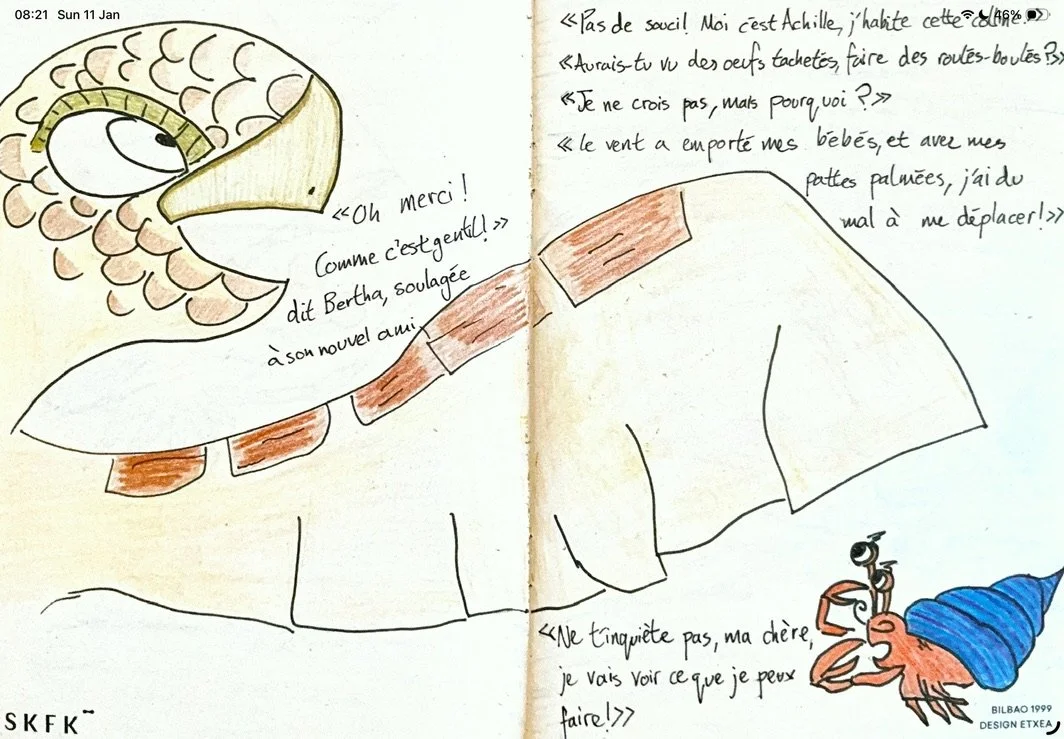 08:21 Sun 11 Jan
46%
«Oh merci !
Comme c'est gentil!»
dit Bertha, soulagée
à son nouvel ami.
SKFK
«Pas de souci! Moi c'est Achille, j'habite cette
«Aurais-tu vu des oeufs tachetés, faire des roulés-boulés?»
«Je ne crois pas, mais pourquoi ?»
«le vent a emporté mes bébés, et avec mes
pattes palmées, j'ai du
mal à me déplacer!»
«Ne t'inquiète pas, ma chère,
je vais voir ce que je peux
faire!»
BILBAO 1999
DESIGN ETXEA